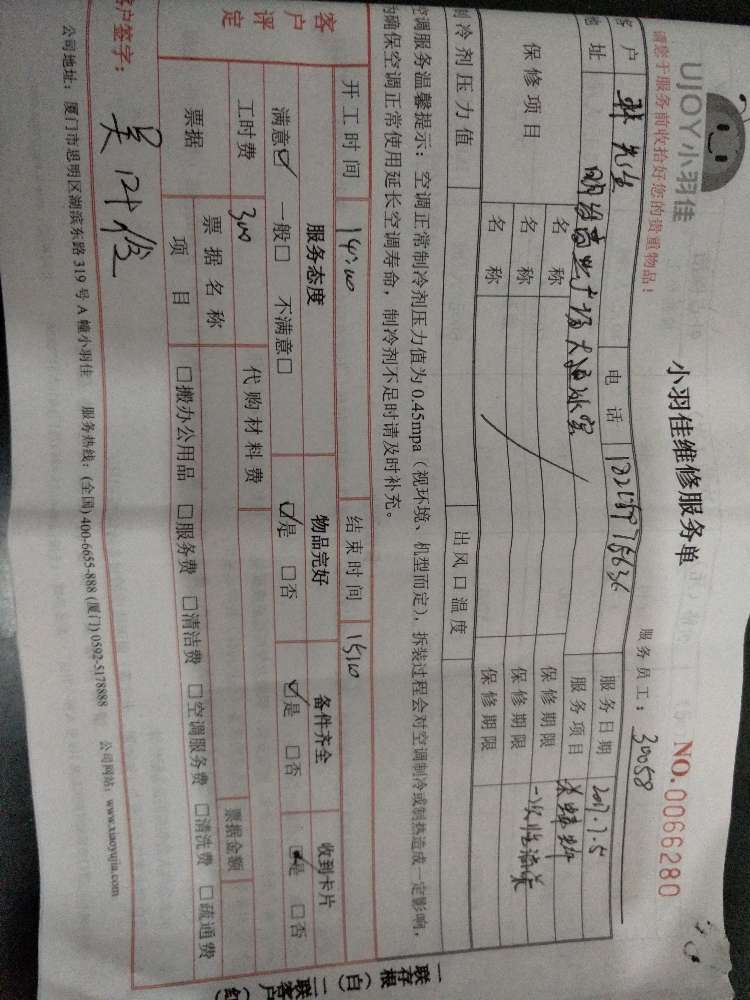 UJOY小羽佳
小羽佳维修服务单
NO.0066280
请您于服务前收拾好您的贵重物品!
服务员工: 30058
客户 林先生 电话 服务日期 2017.7.5
地址 服务项目
保修项目 名称 保修期限
名称 保修期限
名称 保修期限
制冷剂压力值 出风口温度
空调服务温馨提示:空调正常制冷剂压力值为0.45mpa(视环境、机型而定),拆装过程会对空调制冷或制热造成一定影响,
为确保空调正常使用延长空调寿命,制冷剂不足时请及时补充。
开工时间 14:00 结束时间 15:10
客户评定 服务态度 物品完好 备件齐全 收到卡片
满意☑ 一般□ 不满意□ ☑是 □否 ☑是 □否 ☑是 □否
工时费 300 代购材料费
票据 票据名称 票据金额
项目 □搬办公用品 □服务费 □清洁费 □空调服务费 □清洗费 □疏通费
客户签字:
公司地址:厦门市思明区湖滨东路319号A幢小羽佳 服务热线:(全国)400-6655-888 (厦门) 0592-5178888 公司网站:www.xiaoyujia.com
一联存根(白) 二联客户(红)